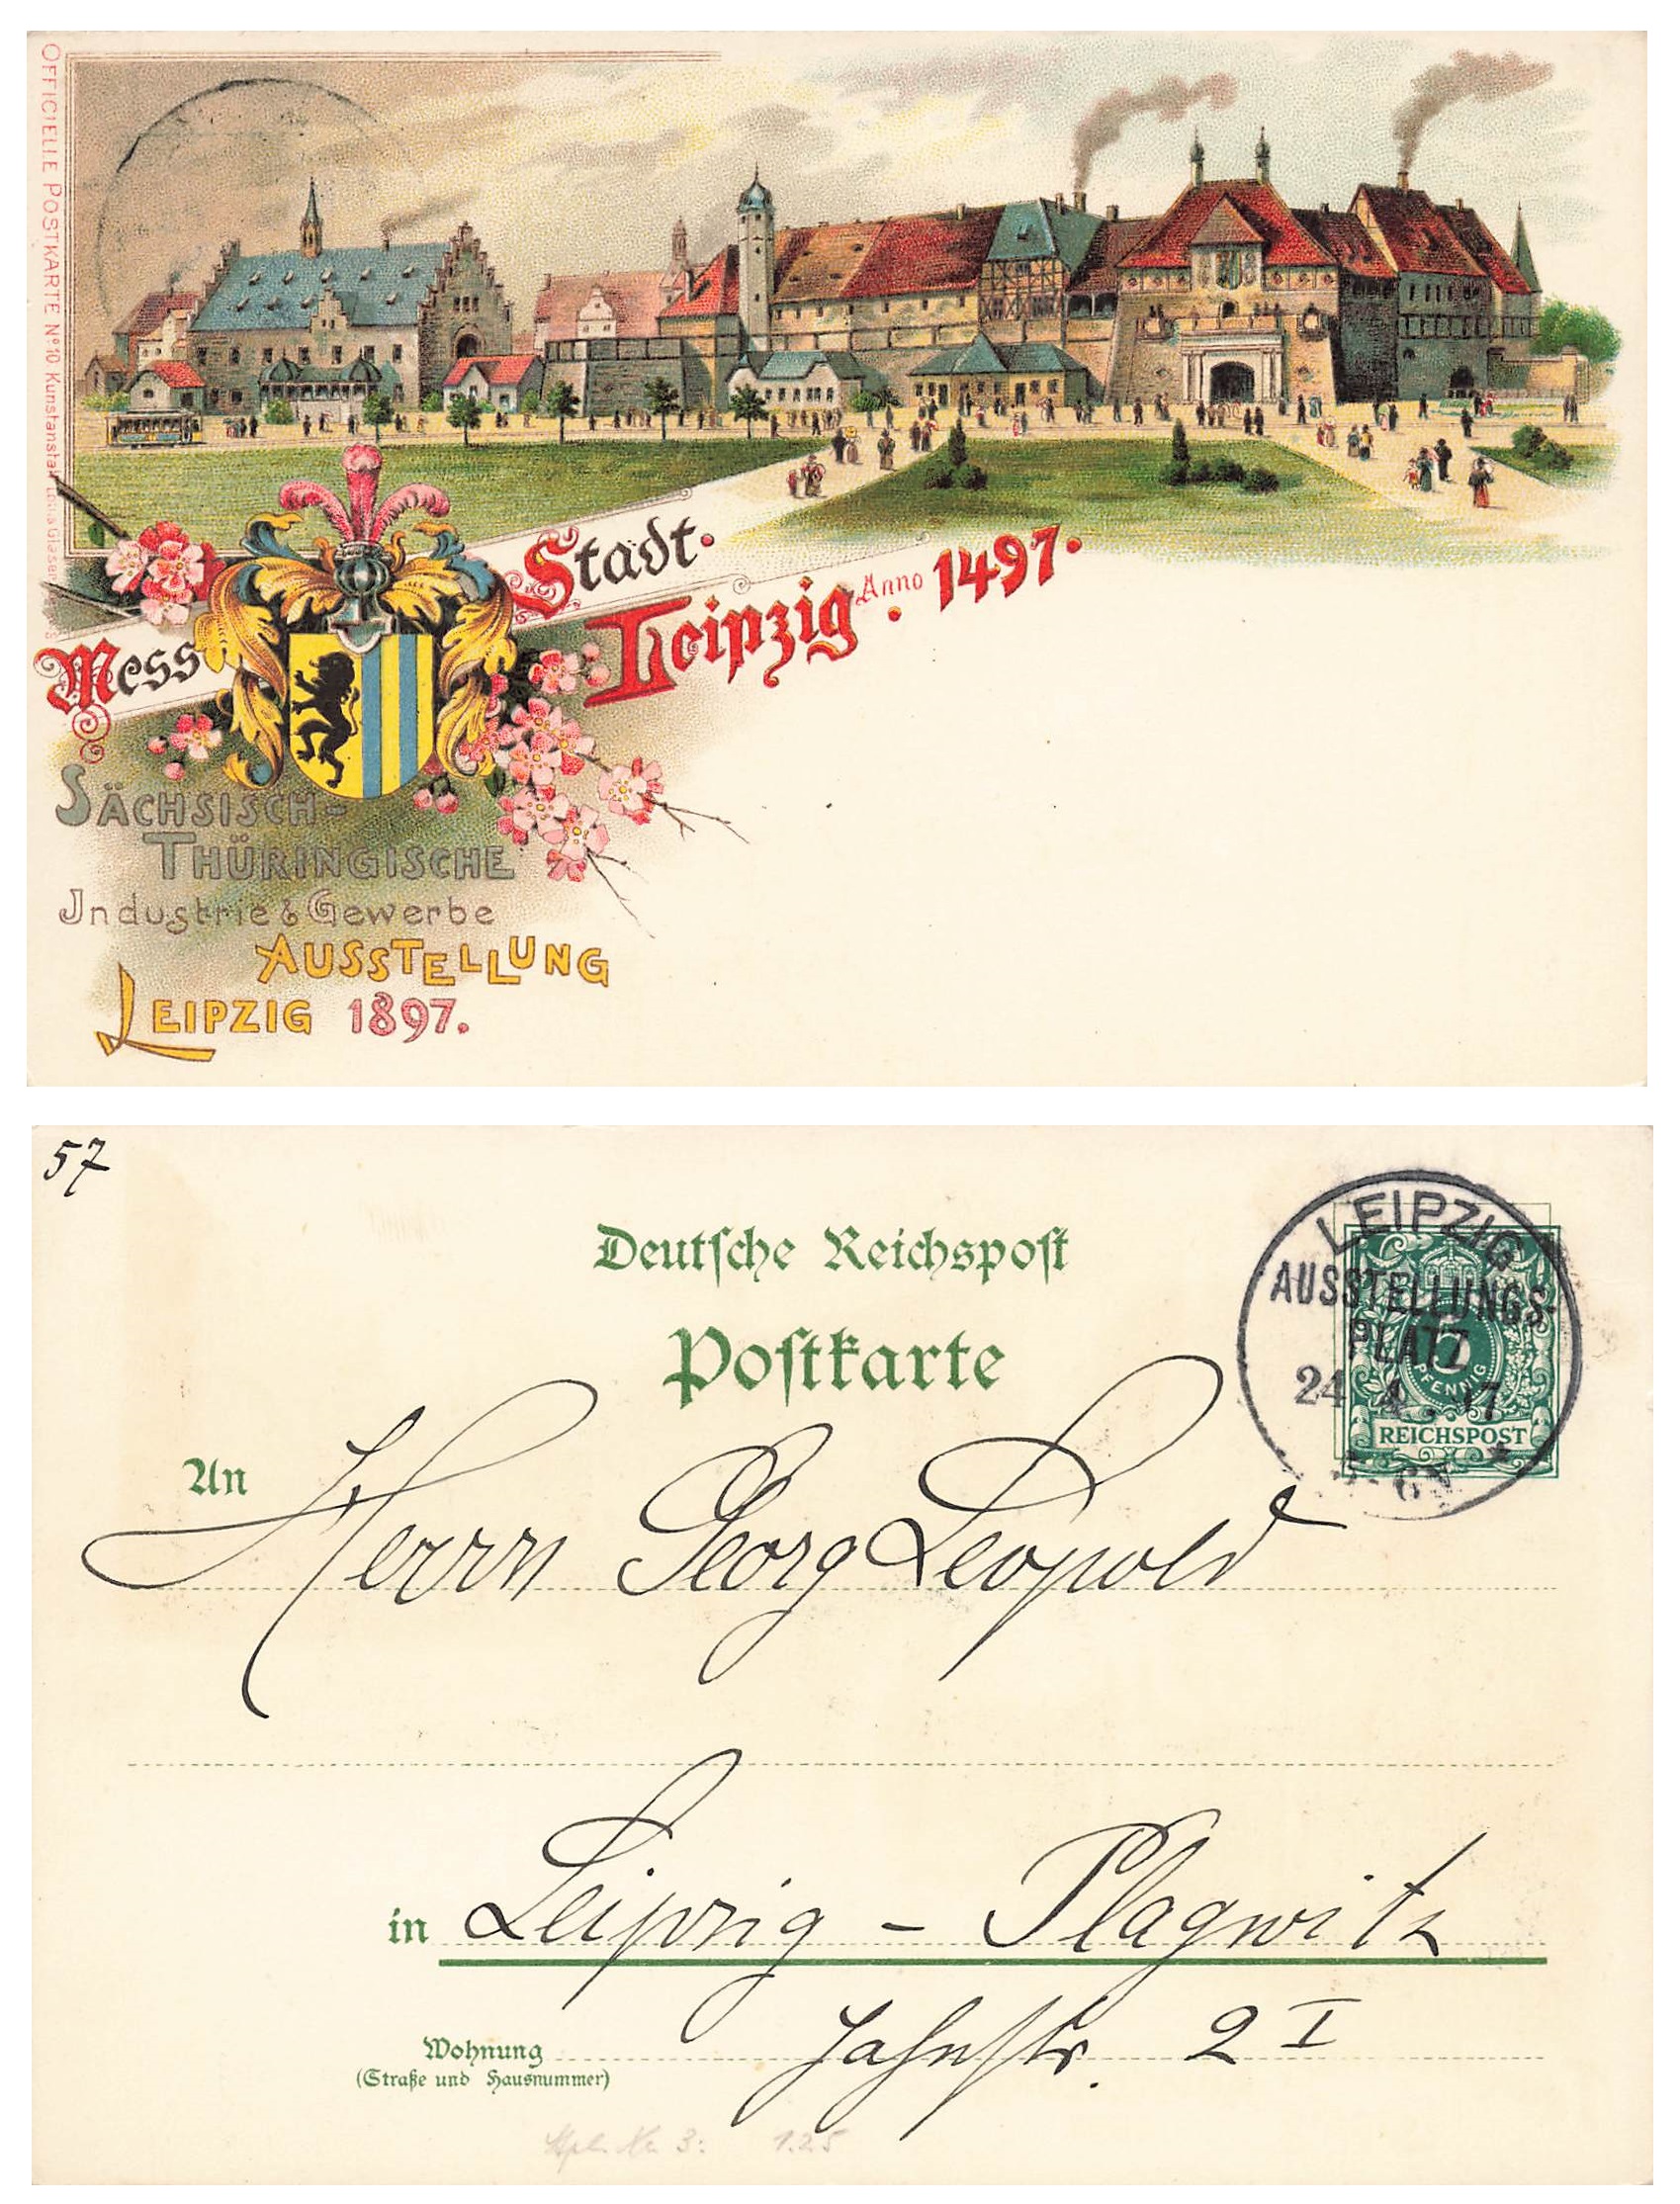 OFFICIELLE POSTKARTE Nº10 Kunstanstalt Louis Glaser
Mess
Stadt.
Leipzig. Anno 1497.
SÄCHSISCH-
THÜRINGISCHE
Industrie & Gewerbe
AUSSTELLUNG
LEIPZIG 1897.
57
Deutsche Reichspost
Postkarte
LEIPZIG
AUSSTELLUNGS-
PLATZ
5
PFENNIG
REICHSPOST
An
Herrn Georg Leopold
in Leipzig - Plagwitz
Wohnung Jahnstr. 2 I
(Straße und Hausnummer)
3: 1.25